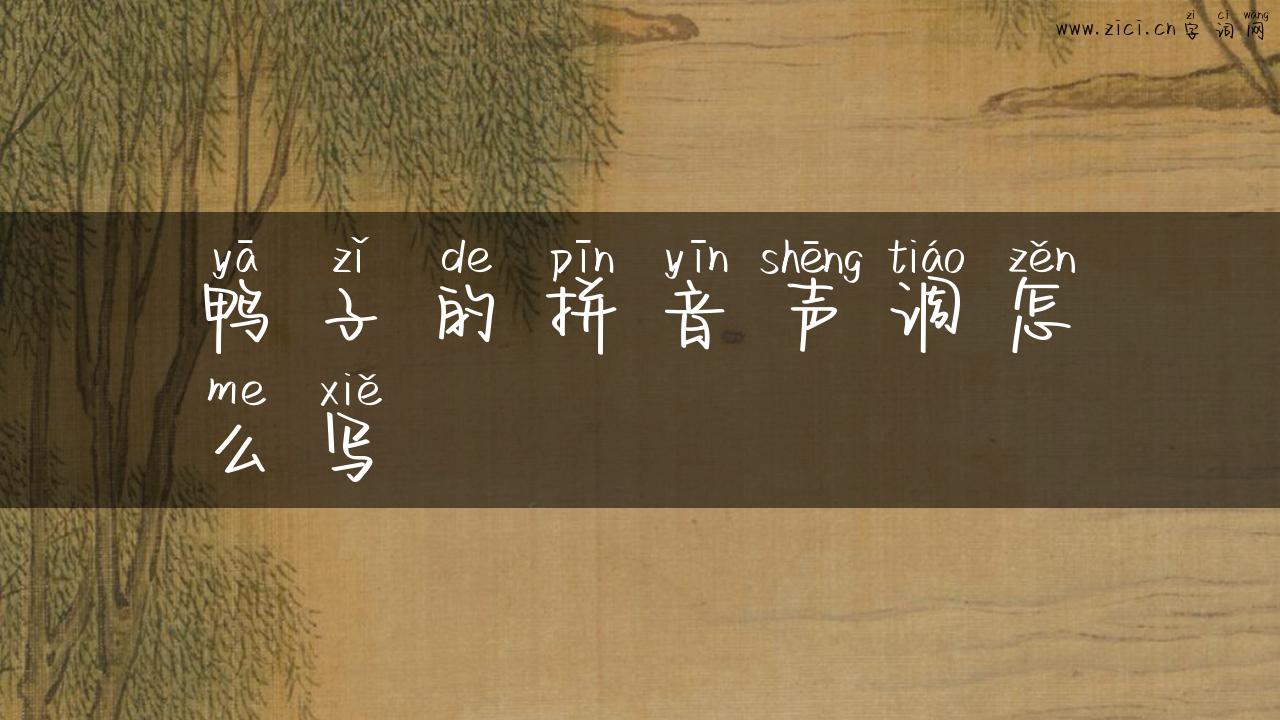 zì cí wǎng
www.zici.cn 字词网
yā zǐ de pīn yīn shēng tiáo zěn
鸭子的拼音声调怎
me xiě
么写